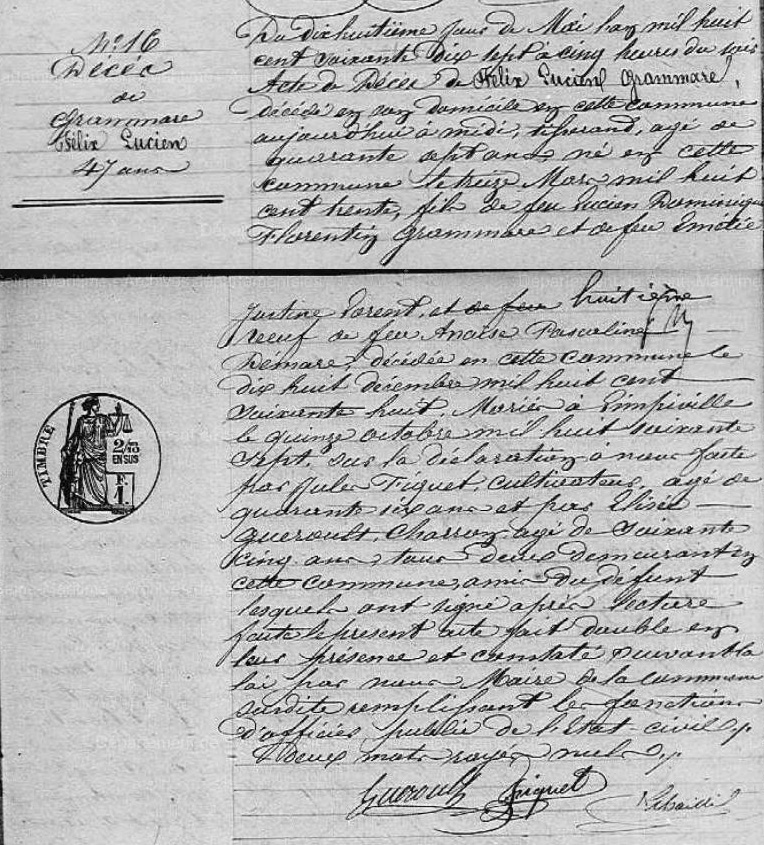 N° 16
Décès
de
Grammare
Félix Lucien
47 ans
Du dixhuitième jour de Mai l'an mil huit
cent soixante dix sept à cinq heures du soir
Acte de Décès de Félix Lucien Grammare,
décédé en son domicile en cette commune
aujourd'hui à midi, tisserand, agé de
quarante sept ans né en cette
commune le treize Mars mil huit
cent trente, fils de feu Lucien Dominique
Florentin Grammare et de feu Emélie
Justine Lorent, et de feu huitième
veuf de feu Anaïse Pascaline
Démare, décédée en cette commune le
dix huit décembre mil huit cent
soixante huit. Mariés à Limpiville
le quinze octobre mil huit soixante
sept, sur la déclaration à nous faite
par Jules Tiquet, cultivateur, agé de
quarante six ans et par Elisée
Queroult, Charron, agé de soixante
cinq ans, tous deux demeurant en
cette commune, amis du défunt
lesquels ont signé après lecture
faite le présent acte fait double en
leur présence et constaté suivant la
loi par nous Maire de la commune
susdite remplissant les fonctions
d'officier public de l'Etat-civil
deux mots rayés nuls
TIMBRE
2/10
EN SUS
F
1.
Tiquet